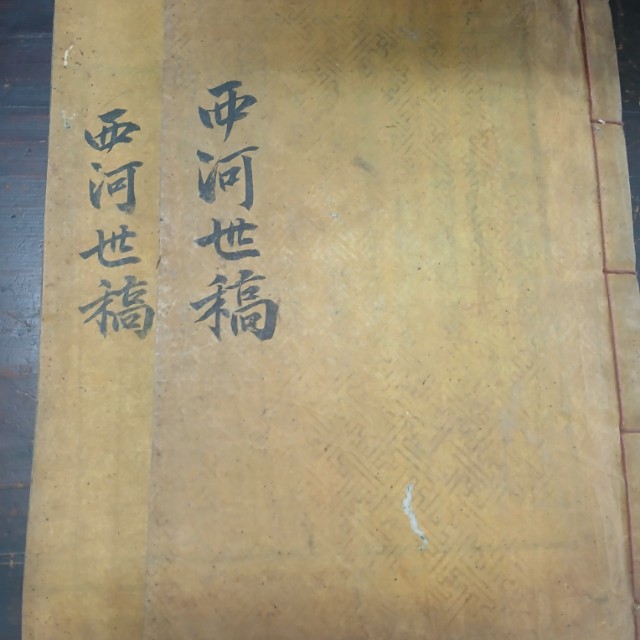 西河世稿
西河世稿